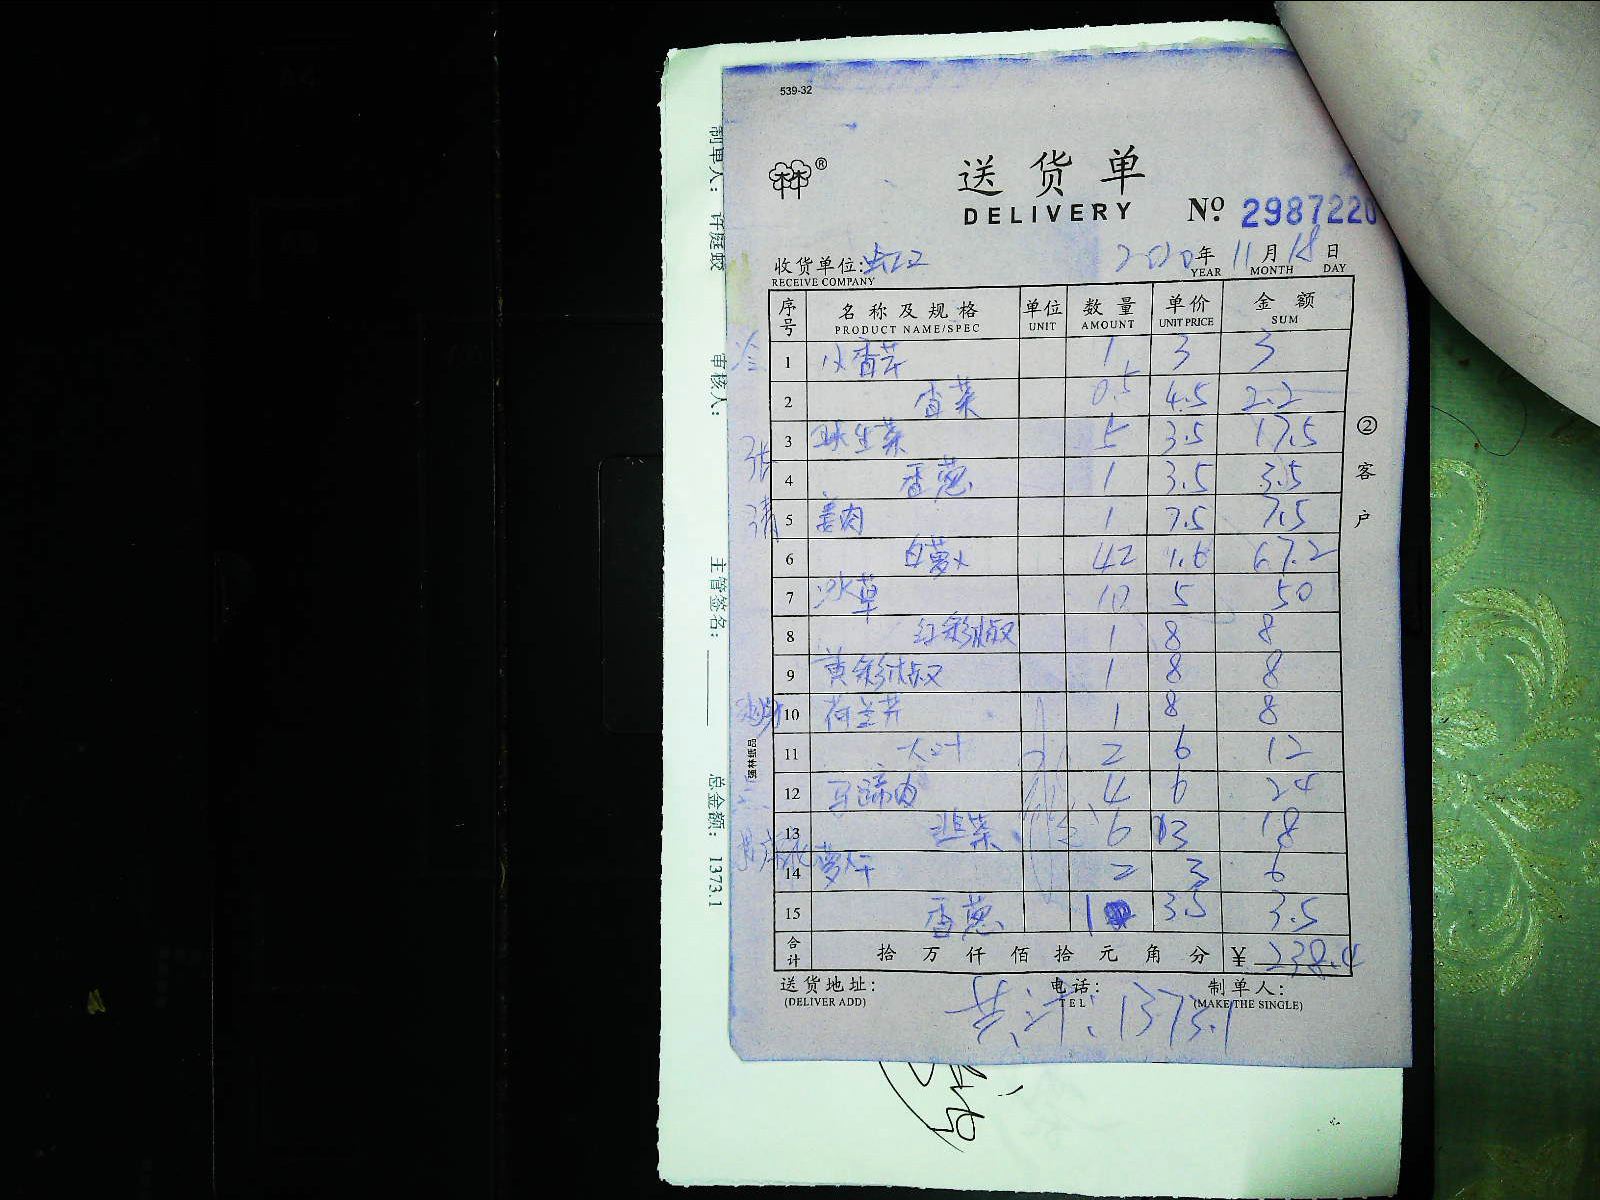 539-32
®
送货单
DELIVERY
№ 2987220
收货单位:虹卫 2020年 11月 18日
RECEIVE COMPANY YEAR MONTH DAY
序号 名称及规格 单位 数量 单价 金额
PRODUCT NAME/SPEC UNIT AMOUNT UNIT PRICE SUM
1 小香芹 1 3 3
2 香菜 0.5 4.5 2.2
3 球生菜 5 3.5 17.5
4 香葱 1 3.5 3.5
5 姜肉 1 7.5 7.5
6 白萝卜 42 1.6 67.2
7 冰草 10 5 50
8 红彩椒 1 8 8
9 黄彩椒 1 8 8
10 荷兰芹 1 8 8
11 大叶 2 6 12
12 马蹄肉 4 6 24
13 韭菜 6 3 18
14 萝卜干 2 3 6
15 香葱 1 3.5 3.5
合计 拾 万 仟 佰 拾 元 角 分 ¥ 238.4
送货地址: 电话: 制单人:
(DELIVER ADD) TEL (MAKE THE SINGLE)
共计:1373.1
②客户
强林纸品
制单人: 许庭蛟
审核人:
主管签名:
总金额: 1373.1